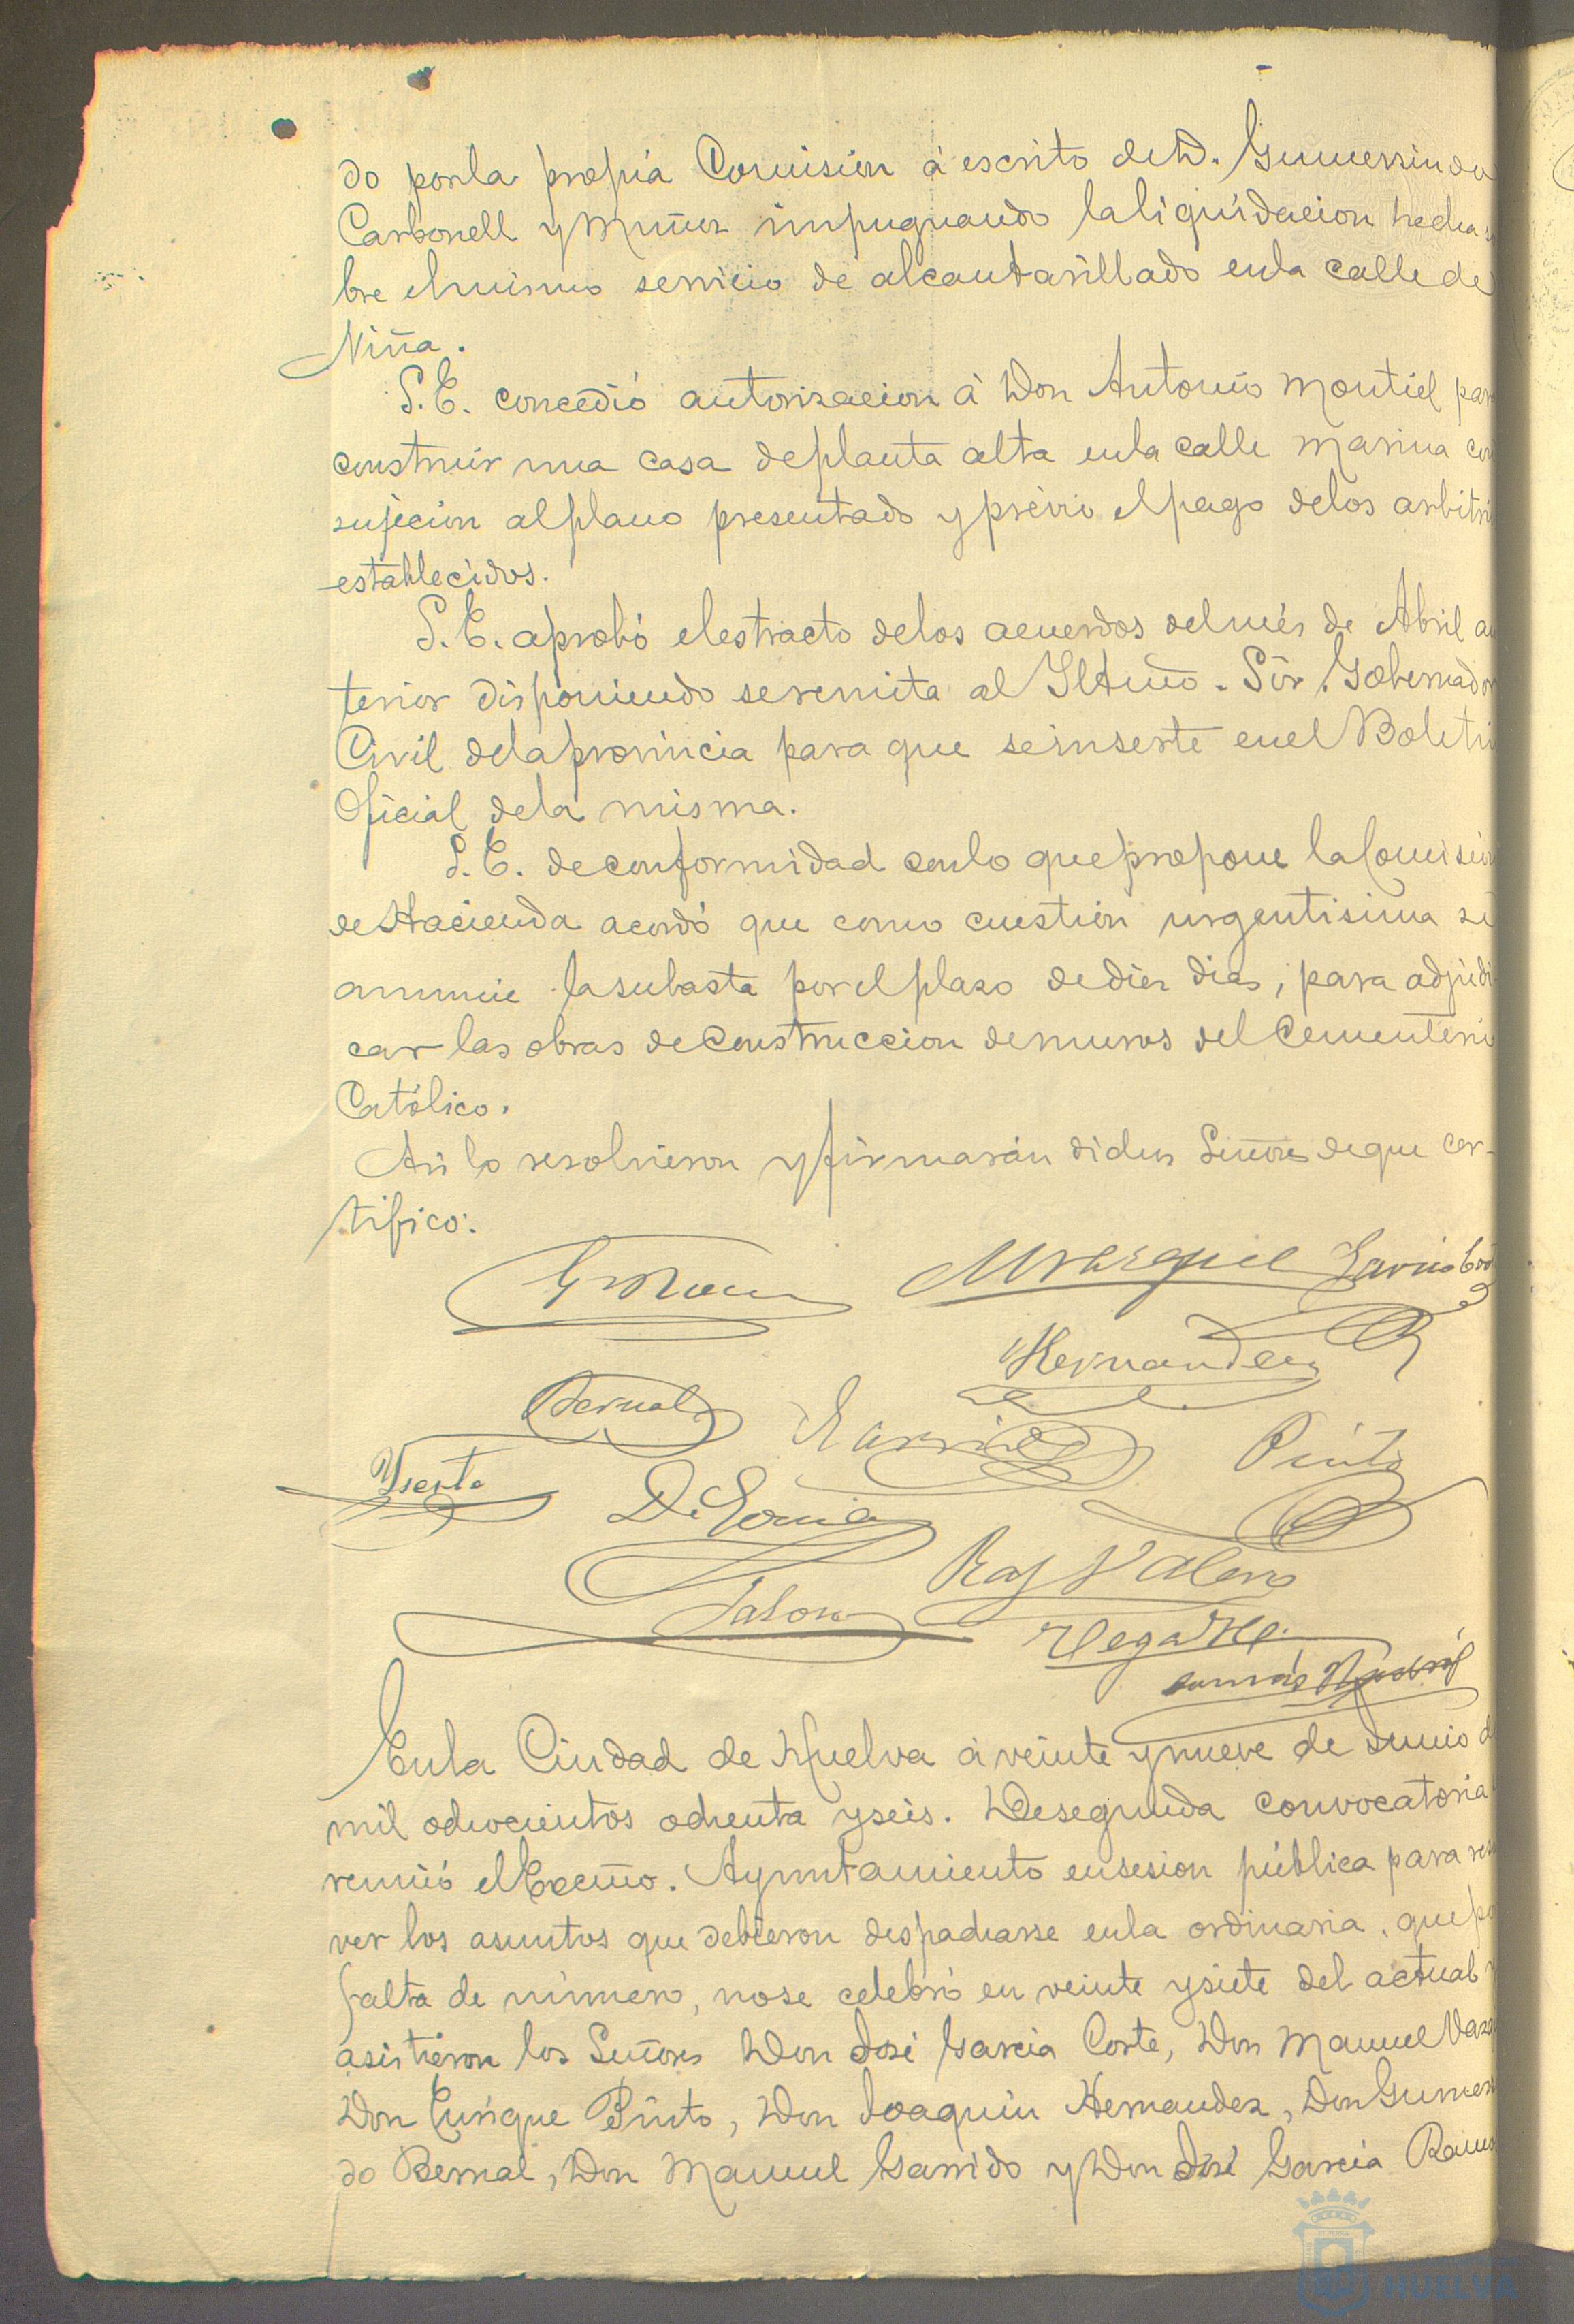 do por la propia Comision á escrito de D. Gumersindo
Carbonell y Muñoz impugnando la liquidacion hecha
bre el mismo servicio de alcantarillado en la calle de
Niña.
S. E. concedió autorizacion á Don Antonio Montiel para
construir una casa de planta alta en la calle Marina con
sujecion al plano presentado y prévio el pago de los arbitri
establecidos.
S. E. aprobó el estracto de los acuerdos del més de Abril an
terior disponiendo se remita al Iltmo. Sór. Gobernador
Civil de la provincia para que se inserte en el Boletin
Oficial de la misma.
S. E. de conformidad con lo que propone la Comision
de Hacienda acordó que como cuestion urgentisima se
anuncie la subasta por el plazo de diez dias, para adjudi
car las obras de construccion de muros del Cementerio
Católico.
Asi lo resolvieron y firmarán dichos Señores de que cer-
tifico.
Mrazquez
Hernandez
Bernal Garrido Pinto
D. Soria
Roy Valero
En la Ciudad de Huelva á veinte y nueve de Junio d
mil ochocientos ochenta y seis. De segunda convocatoria
reunió el Excmo. Ayuntamiento en sesion pública para res
ver los asuntos que debieron despacharse en la ordinaria, que po
falta de número, no se celebró en veinte y siete del actual
asistieron los Señores Don José Garcia Corte, Don Manuel Vazq
Don Enrique Pinto, Don Joaquin Hernandez, Don Gumers
do Bernal, Don Manuel Garrido y Don José Garcia Ramo
HUELVA